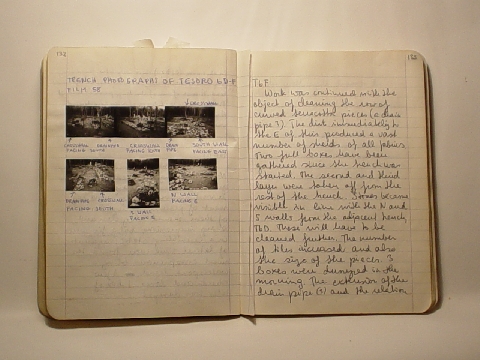 132
TRENCH PHOTOGRAPHS OF TESORO 6D-F
FILM 58
FACING SOUTH
DRAINPIPE
FACING
DRAIN PIPE
SOUTH WALL
FACING
FACING SOUTH
S WALL
FACING S
N WALL
FACING E
133
T6F
Work was continued with the
object of cleaning the row of
curved terracotta pieces (a drain
pipe?). The dirt immediately to
the E of this produced a vast
number of sherds, of all fabrics.
Two full boxes have been
gathered since the trench was
started. The second and third
layer were taken off from the
rest of the trench. Stones became
visible in line with the N and
S walls from the adjacent trench,
T6D. These will have to be
cleaned further. The number
of tiles increased and also
the size of the pieces. 3
boxes were dumped in the
morning. The extension of the
drain pipe (?) and the relation